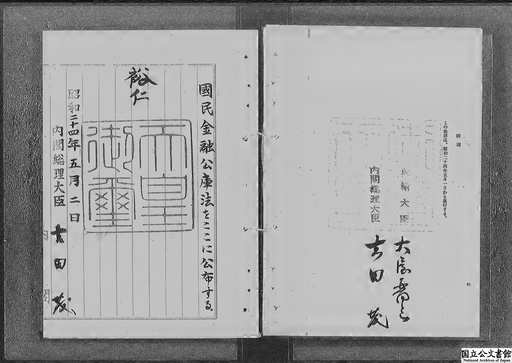 附則
この法律は、昭和二十四年五月一日から施行する。
運輸大臣
大屋晋三
内閣総理大臣
吉田茂
国民金融公庫法をここに公布する。
裕仁
天皇御璽
昭和二十四年五月二日
内閣総理大臣
吉田茂
国立公文書館
National Archives of Japan